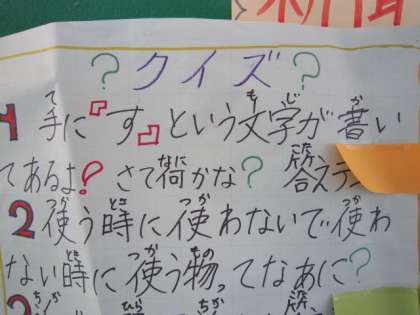 新聞
? クイズ ?
1 手に『す』という文字が書い
てあるよ? さて荷かな? 答えテ
2 使う時に使わないで使わ
ない時に使う物ってなあに?
3